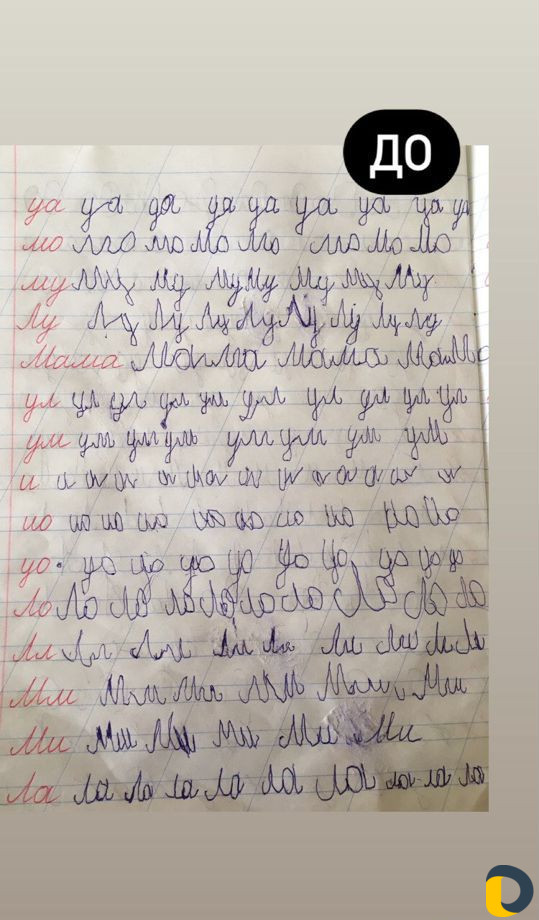 ДО
уа уа уа уа уа уа уа уа уа
мо мо мо мо мо мо мо мо
му му му му му му му му
Лу Лу Лу Лу Лу Лу Лу Лу Лу
Мама Мама мама Мама
ул ул ул ул ул ул ул ул ул ул
ум ум ум ум ум ум ум ум
и и и и и и и и и и и и
ио ио ио ио ио ио ио ио ио ио
уо уо уо уо уо уо уо уо уо уо
Ло Ло Ло Ло Ло Ло Ло Ло Ло Ло
Лл Лл
Мм Мм Мм Мм Мм Мм
Ми Ми Ми Ми Ми Ми
Ла Ла Ла Ла Ла Ла Ла ла ла ла